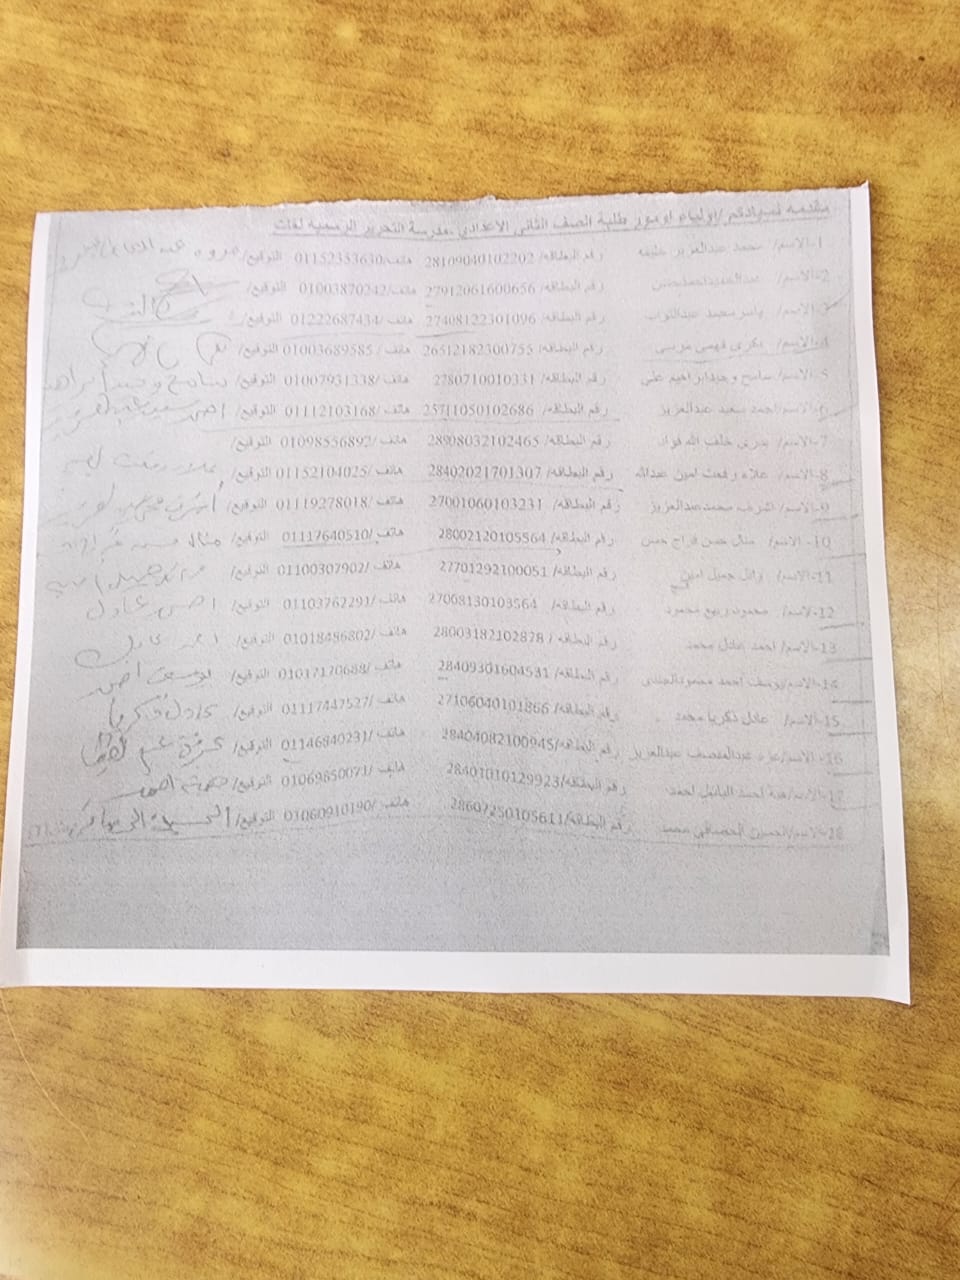 مقدمه لسيادتكم /اولياء امور طلبة الصف الثاني الاعدادي مدرسة التحرير الرسمية لغات
1-الاسم/ محمد عبدالعزيز خليفه رقم البطاقه/ 28109040102202 هاتف/01152353630 التوقيع/ مروه عبد
2-الاسم/ رقم البطاقه/ 27912061600656 هاتف/01003870242 التوقيع/
3-الاسم/ ياسر محمد عبدالتواب رقم البطاقه/ 27408122301096 هاتف /01222687434 التوقيع/
4-الاسم/ بكرى فهمى مرسى رقم البطاقه/ 26512182300755 هاتف /01003689585 التوقيع/
5-الاسم/ سامح وحيدابراهيم على رقم البطاقه/ 2780710010331 هاتف /01007931338 التوقيع/ سامح وحيد ابراهيم
6-الاسم/احمد سعيد عبدالعزيز رقم البطاقه/ 25711050102686 هاتف /01112103168 التوقيع/ احمد سعيد عبدالعزيز
7-الاسم/ خلف الله فواد رقم البطاقه/ 28908032102465 هاتف /01098556892 التوقيع/
8-الاسم/ علاء رفعت امين عبدالله رقم البطاقه/ 28402021701307 هاتف /01152104025 التوقيع/ علاء رفعت
9-الاسم/ اشرف محمدعبدالعزيز رقم البطاقه/ 27001060103231 هاتف /01119278018 التوقيع/ اشرف محمد
10- الاسم/ منال حسن فراج حسن رقم البطاقه/ 28002120105564 هاتف /01117640510 التوقيع/ منال حسن
11-الاسم/ وائل جميل امين رقم البطاقه/ 27701292100051 هاتف /01100307902 التوقيع/
12-الاسم/ محمود ربيع محمود رقم البطاقه/ 27068130103564 هاتف /01103762291 التوقيع/ عادل
13-الاسم/ احمد عادل محمد رقم البطاقه / 28003182102878 هاتف /01018486802 التوقيع/ احمد عادل
14-الاسم/يوسف احمد محمود رقم البطاقه/ 28409301604531 هاتف /01017170688 التوقيع/ يوسف احمد
15-الاسم/ عادل ذكريا محمد رقم البطاقه/ 27106040101866 هاتف /01117447527 التوقيع/ عادل ذكريا
16-الاسم/عزه عبدالمنصف عبدالعزيز رقم البطاقه/28404082100945 هاتف /01146840231 التوقيع/ عزة
17-الاسم/هبة احمد احمد رقم البطاقه/28401010129923 هاتف /01069850071 التوقيع/
18-الاسم/الحسين الحصافي محمد رقم البطاقه/28607250105611 هاتف /01060910190 التوقيع/